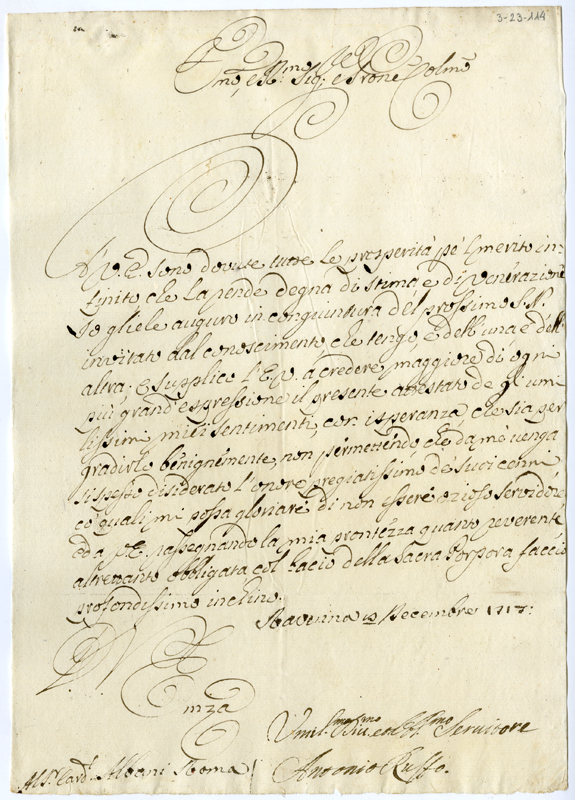 3-23-114
Emo, e Rmo Sig.r e Prone Colmo
A V. E. sono dovute tutte le prosperità pe'l merito in-
finito, che la rende degna di stima, e di venerazione
Io gliele auguro in congiuntura del prossimo S. N.
invitato dal conoscimento, che tengo, e dell'una, e dell'
altra; e supplico l'E. V. a credere maggiore di ogni
più grand'espressione il presente attestato de gl'umi
lissimi miei sentimenti, con isperanza, che sia per
gradirlo benignemente, non permettendo, che da me venga
disiderato l'onore pregiatissimo de suoi comm
co quali mi possa gloriare di non essere ozioso servidore
ed a V. E. rassegnando la mia prontezza quanto reverente
altrettanto obbligata col bacio della Sacra Porpora faccio
profondissimo inchino.
Ravenna 12 Decembre 1717:
D. V. E.
Emza
Umil.mo Div.mo ed Obl.mo Servitore
Antonio Ruffo.
Al Sr. Card. Albani Roma